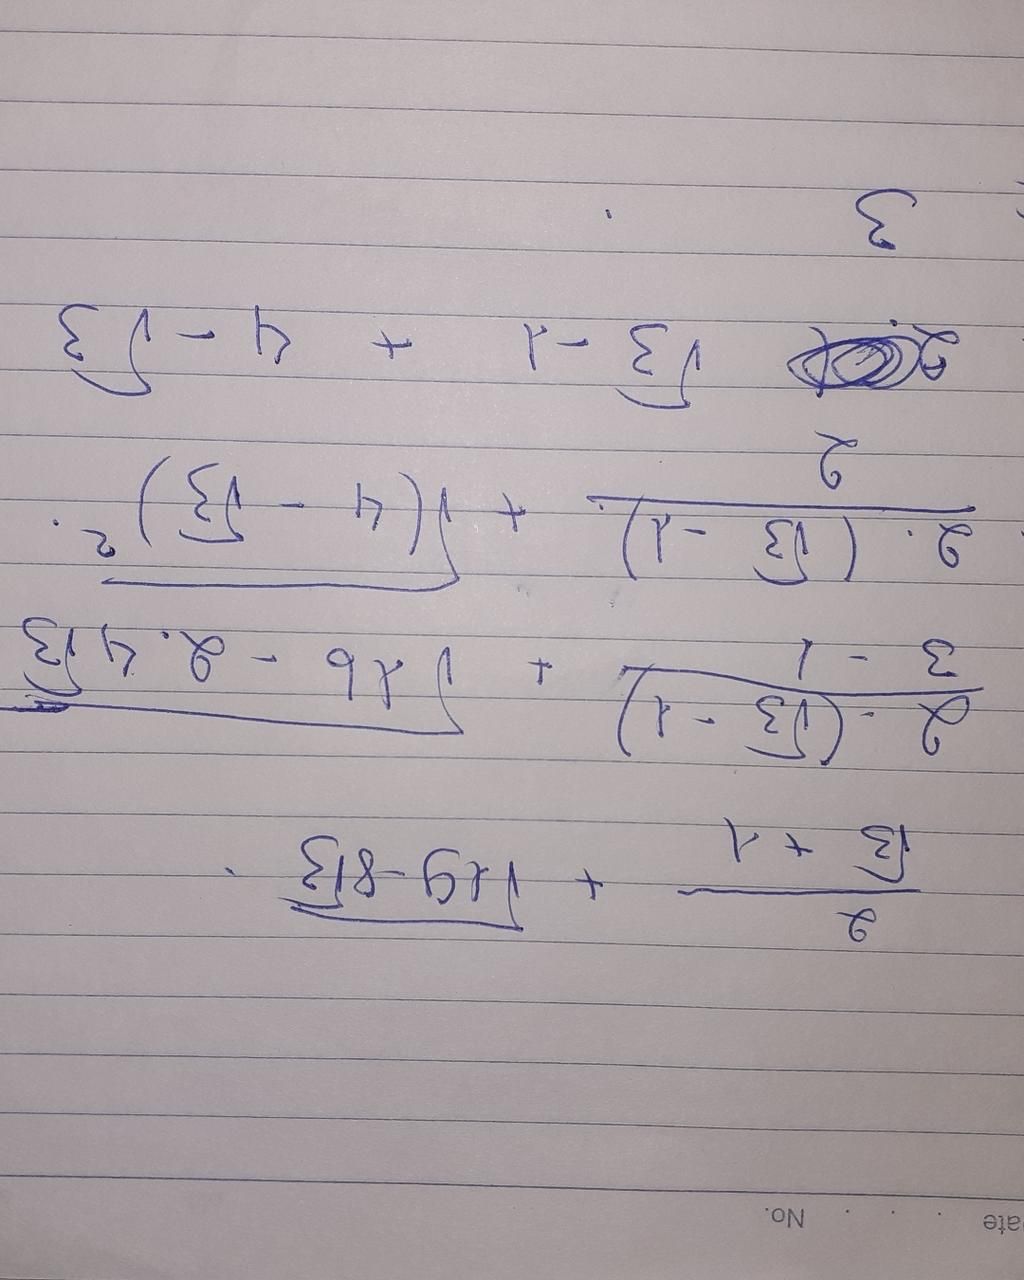 No. . . . Date
2/(√3 + 1) + √(19-8√3)
2.(√3 - 1)/(3 - 1) + √(16 - 2.4√3
2.(√3 - 1)/2 + √(4 - √3)²
√3 - 1 + 4 - √3
3